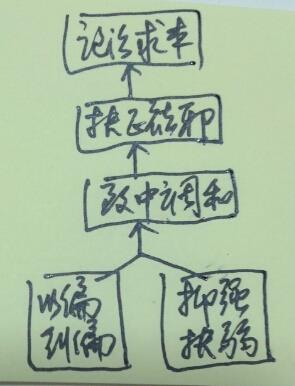 论治求本
扶正祛邪
致中调和
以偏
纠偏
抑强
扶弱